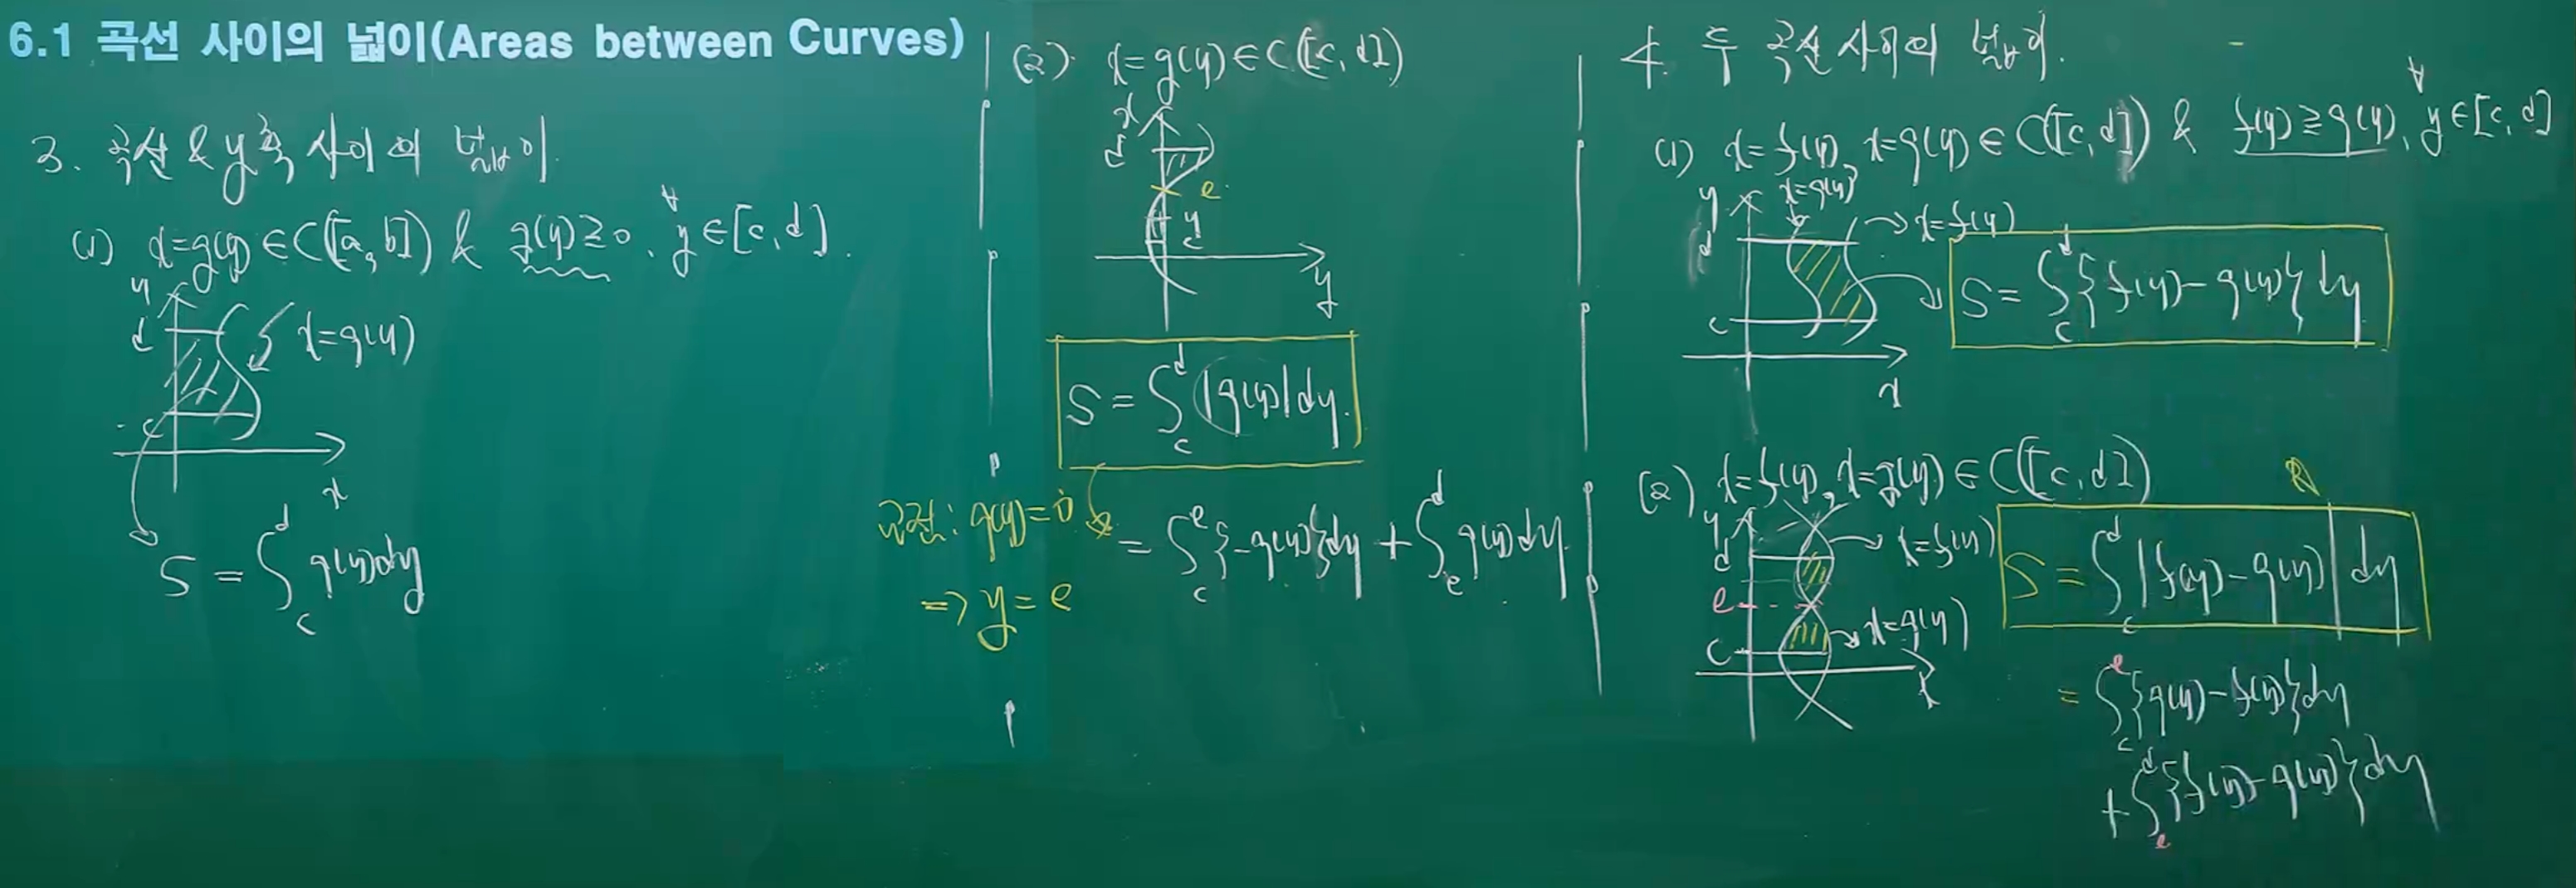 6.1 곡선 사이의 넓이(Areas between Curves)
3. 곡선 & y축 사이의 넓이.
(1) x=g(y)∈C([a,b]) & g(y)≥0, ∀y∈[c,d].
y
d
x=g(y)
c
x
S = ∫_c^d g(y)dy
(2) x=g(y)∈C([c,d])
x
d
e
y
c
y
S = ∫_c^d |g(y)|dy.
교점: g(y)=0
⇒ y=e
= ∫_c^e {-g(y)}dy + ∫_e^d g(y)dy.
4. 두 곡선 사이의 넓이.
(1) x=f(y), x=g(y)∈C([c,d]) & f(y)≥g(y), ∀y∈[c,d]
y
x=g(y)
x=f(y)
d
c
x
S = ∫_c^d {f(y)-g(y)}dy
(2) x=f(y), x=g(y)∈C([c,d])
y
d
x=f(y)
e
x=g(y)
c
x
S = ∫_c^d |f(y)-g(y)|dy
= ∫_c^e {g(y)-f(y)}dy
+ ∫_e^d {f(y)-g(y)}dy